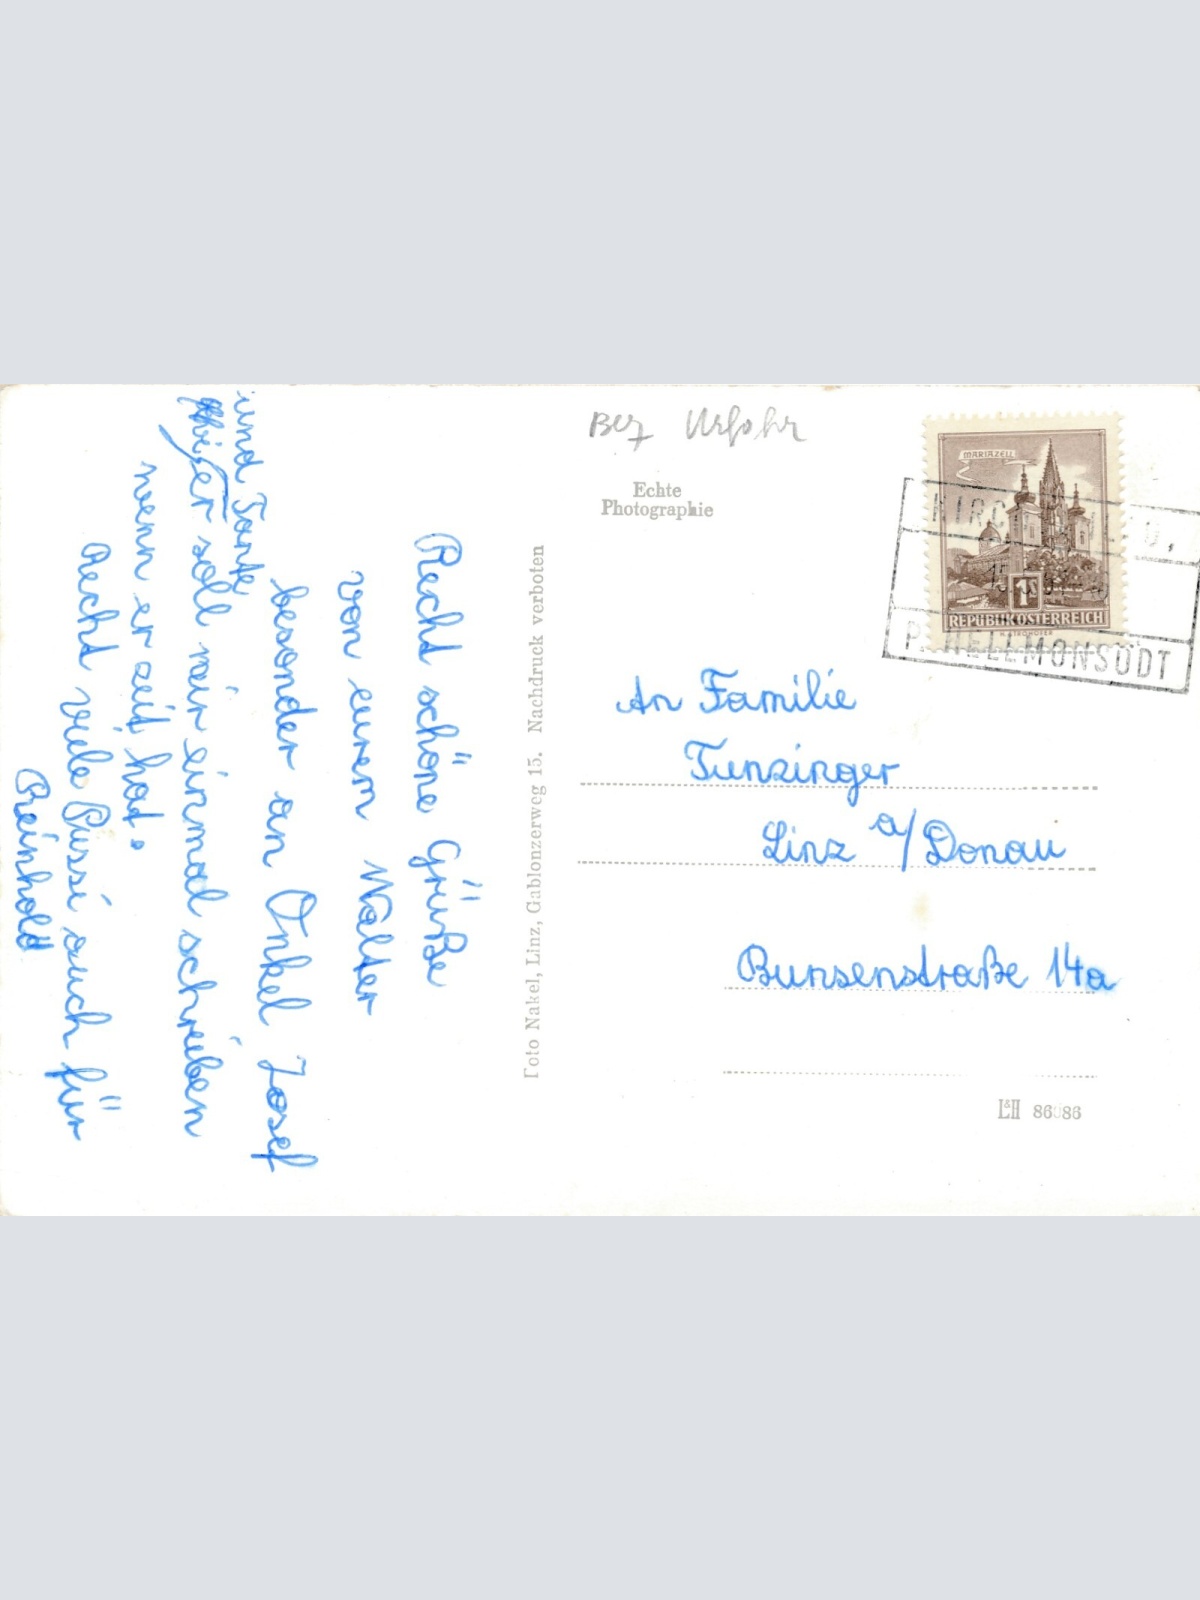 Recht schöne Grüße
von eurem Walter
besonder an Onkel Josef
und Tante
er soll mir einmal schreiben
wenn er zeit hat.
Recht viele Pussi auch für
Reinhold
Foto Nakel, Linz, Gablonzerweg 15. Nachdruck verboten
Bez Urfahr
Echte
Photographie
MARIAZELL
1S
REPUBLIK ÖSTERREICH
HELLMONSÖDT
An Familie
Tunzinger
Linz a/Donau
Bunsenstraße 14a
L&H 86086